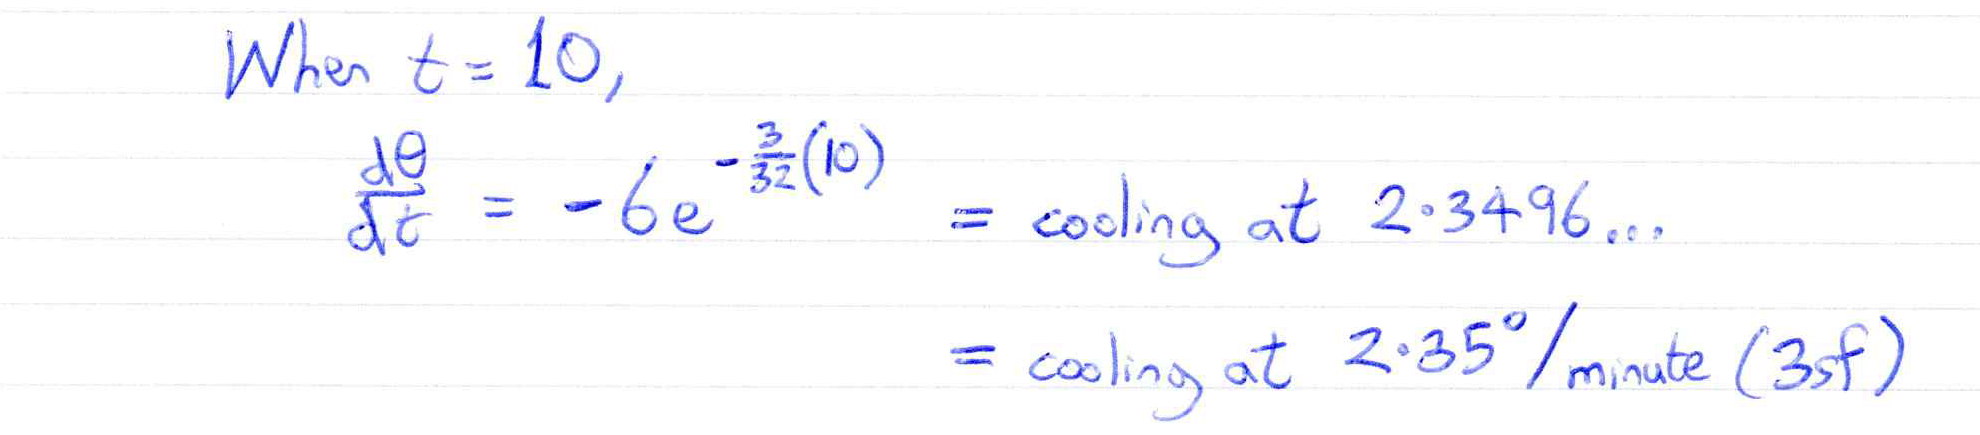 When t = 10,
dθ/dt = -6e^(-3/32(10)) = cooling at 2·3496...
= cooling at 2·35°/minute (3sf)